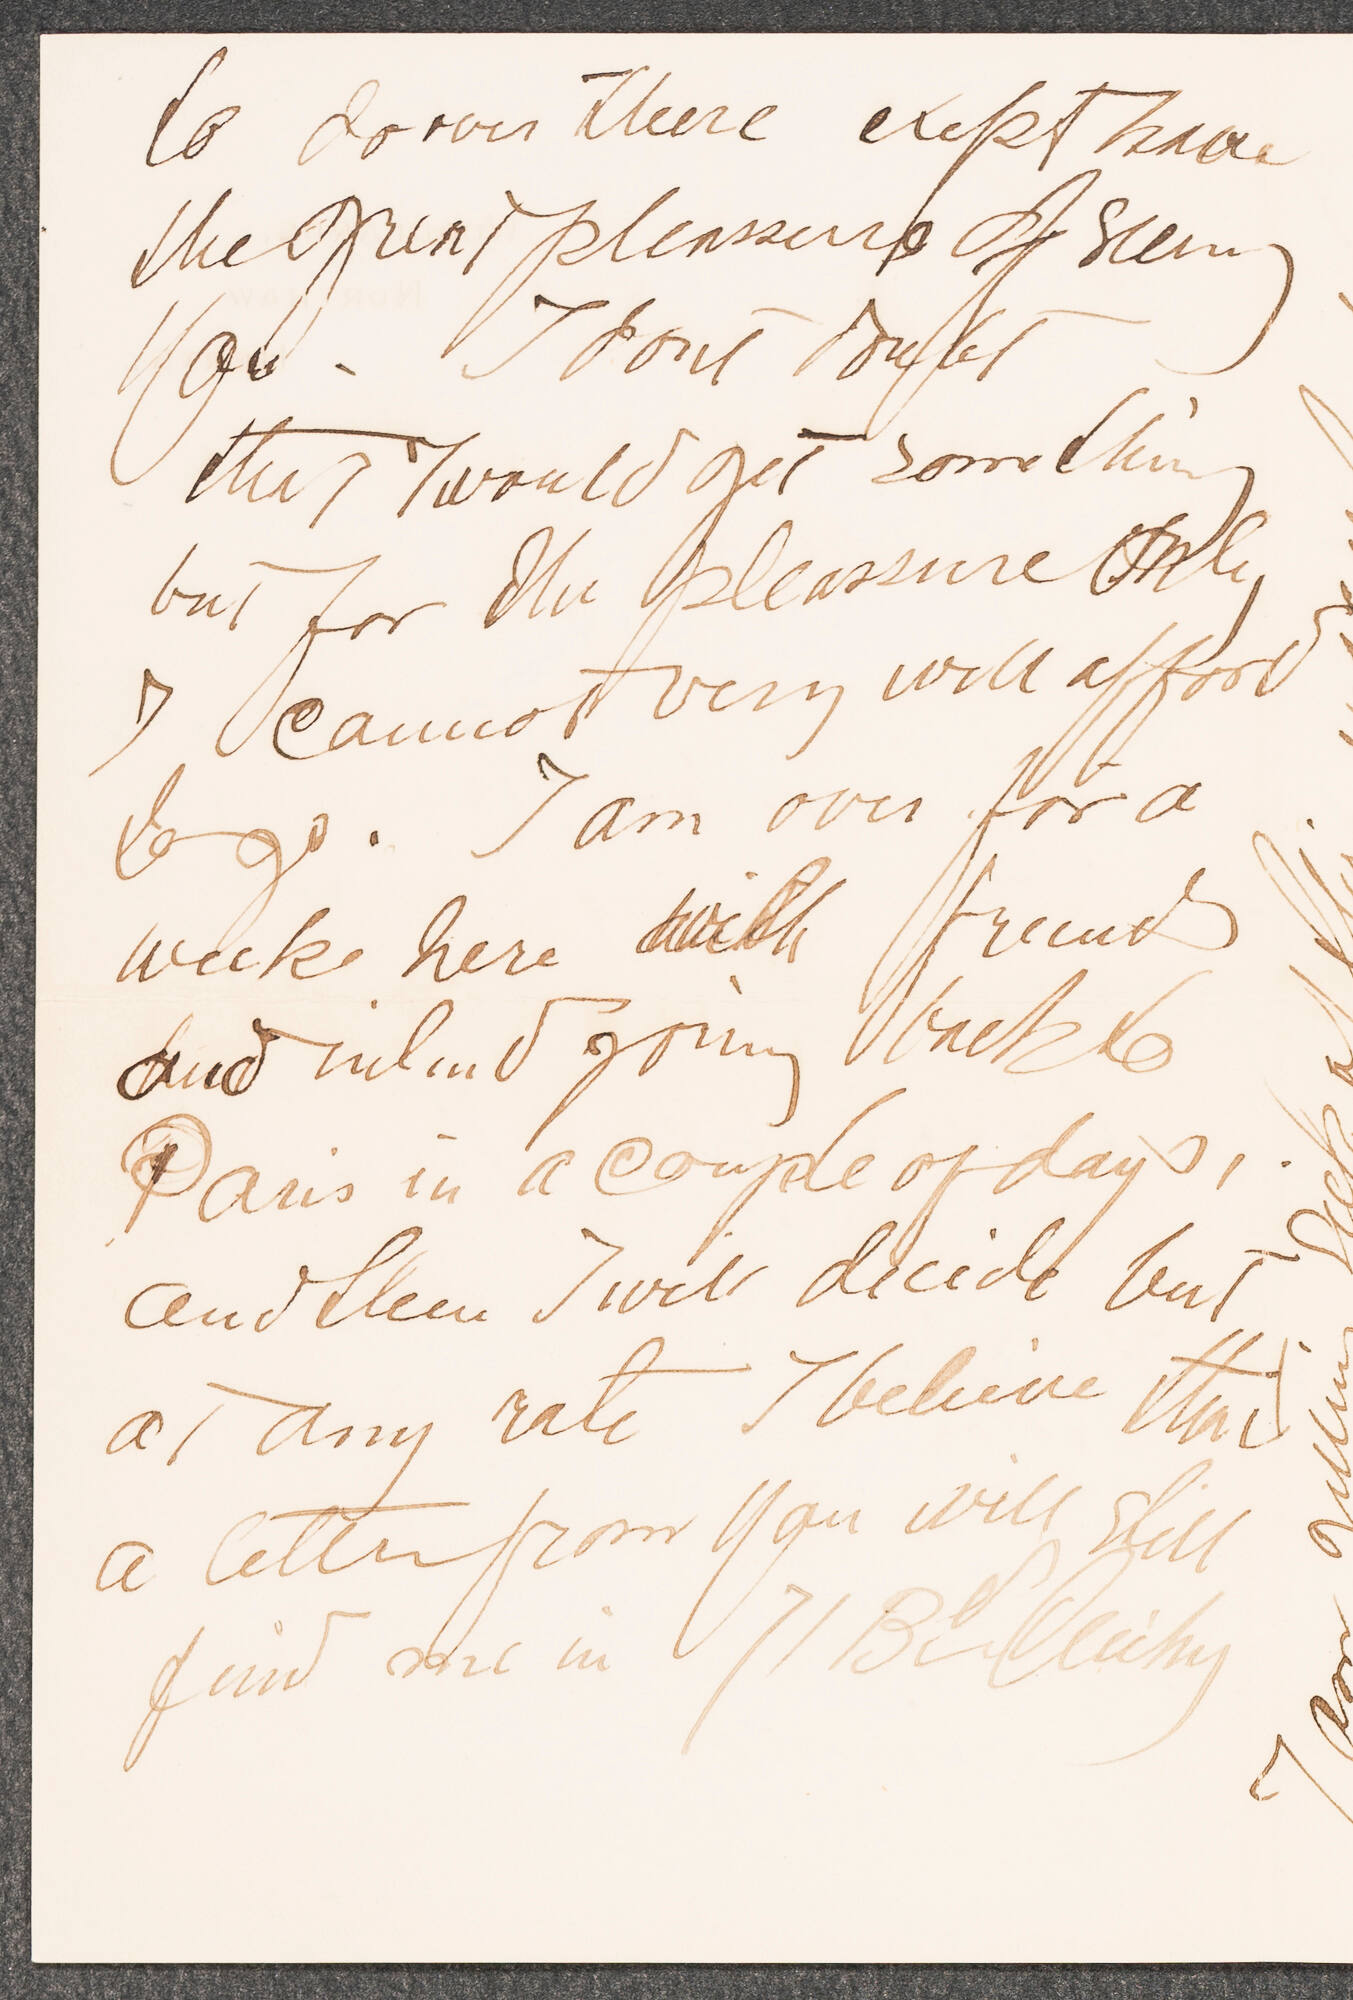 to do over there exept have
the great pleassure of seeing
you. I dont doubt
that I would get something
but for the pleassure only
I cannot very well afford
to go. I am over for a
weeke here with friends
and intend going back to
Paris in a couple of days,
and then I will decide but
at any rate I believe that
a letter from you will still
find me in 71 Bd Clichy
I am